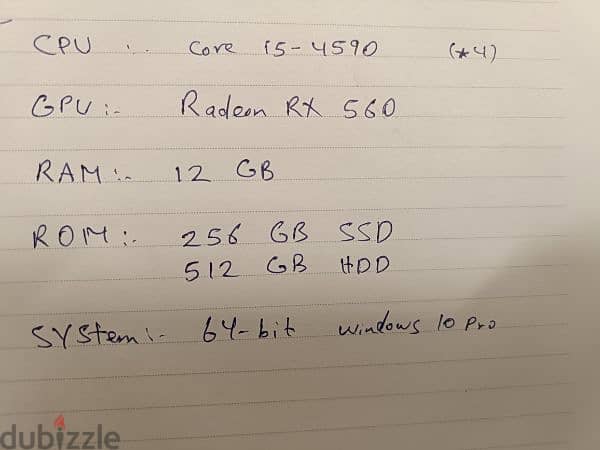 CPU :. Core i5-4590 (*4)
GPU :- Radeon RX 560
RAM :- 12 GB
ROM :- 256 GB SSD
512 GB HDD
SYStem :- 64-bit windows 10 Pro
dubizzle